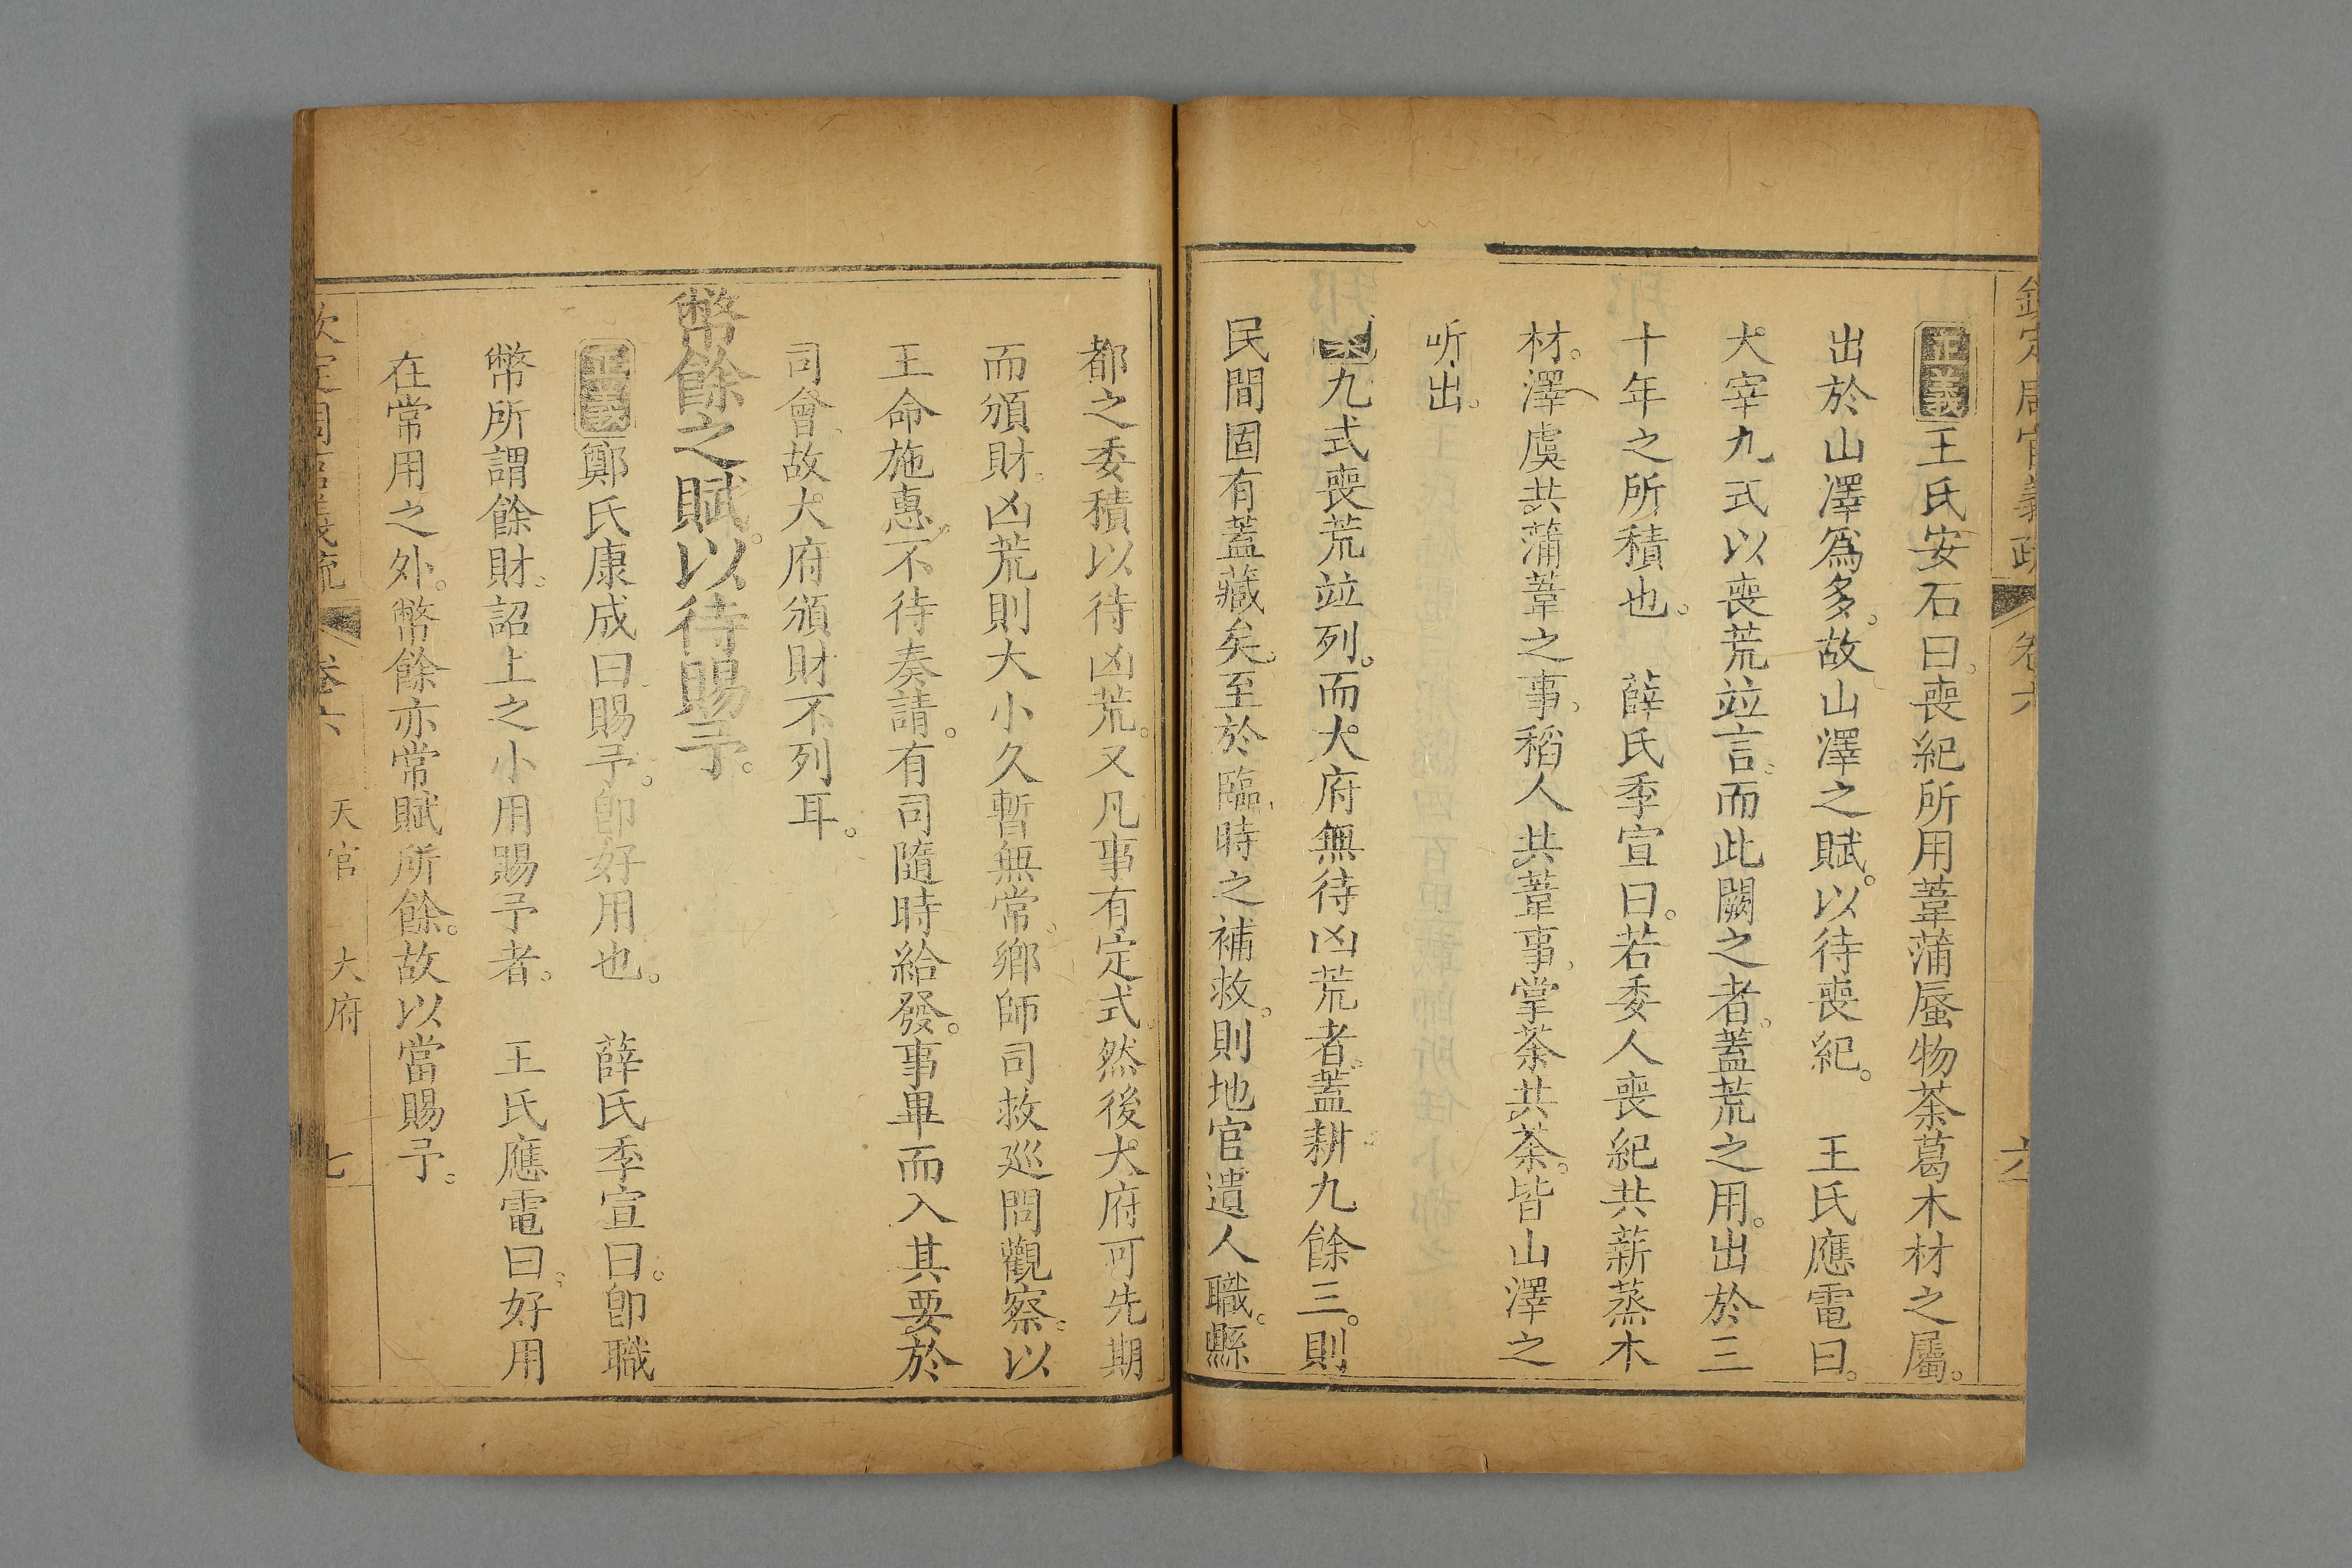 欽定周官義疏 卷六 六
正義王氏安石曰。喪紀所用葦蒲蜃物荼葛木材之屬。
出於山澤爲多。故山澤之賦。以待喪紀。 王氏應電曰。
大宰九式以喪荒竝言。而此闕之者。蓋荒之用。出於三
十年之所積也。 薛氏季宣曰。若委人喪紀共薪蒸木
材。澤虞共蒲葦之事。稻人共葦事。掌荼共荼。皆山澤之
所出。
九式喪荒竝列。而大府無待凶荒者。蓋耕九餘三。則
民間固有蓋藏矣。至於臨時之補救。則地官遺人職。縣
都之委積以待凶荒。又凡事有定式。然後大府可先期
而頒財。凶荒則大小久暫無常。鄉師司救巡問觀察。以
王命施惠。不待奏請。有司隨時給發。事畢而入其要於
司會。故大府頒財不列耳。
幣餘之賦。以待賜予。
正義鄭氏康成曰賜予。卽好用也。 薛氏季宣曰。卽職
幣所謂餘財。詔上之小用賜予者。 王氏應電曰。好用
在常用之外。幣餘亦常賦所餘。故以當賜予。
欽定周官義疏 卷六 天官 大府 七